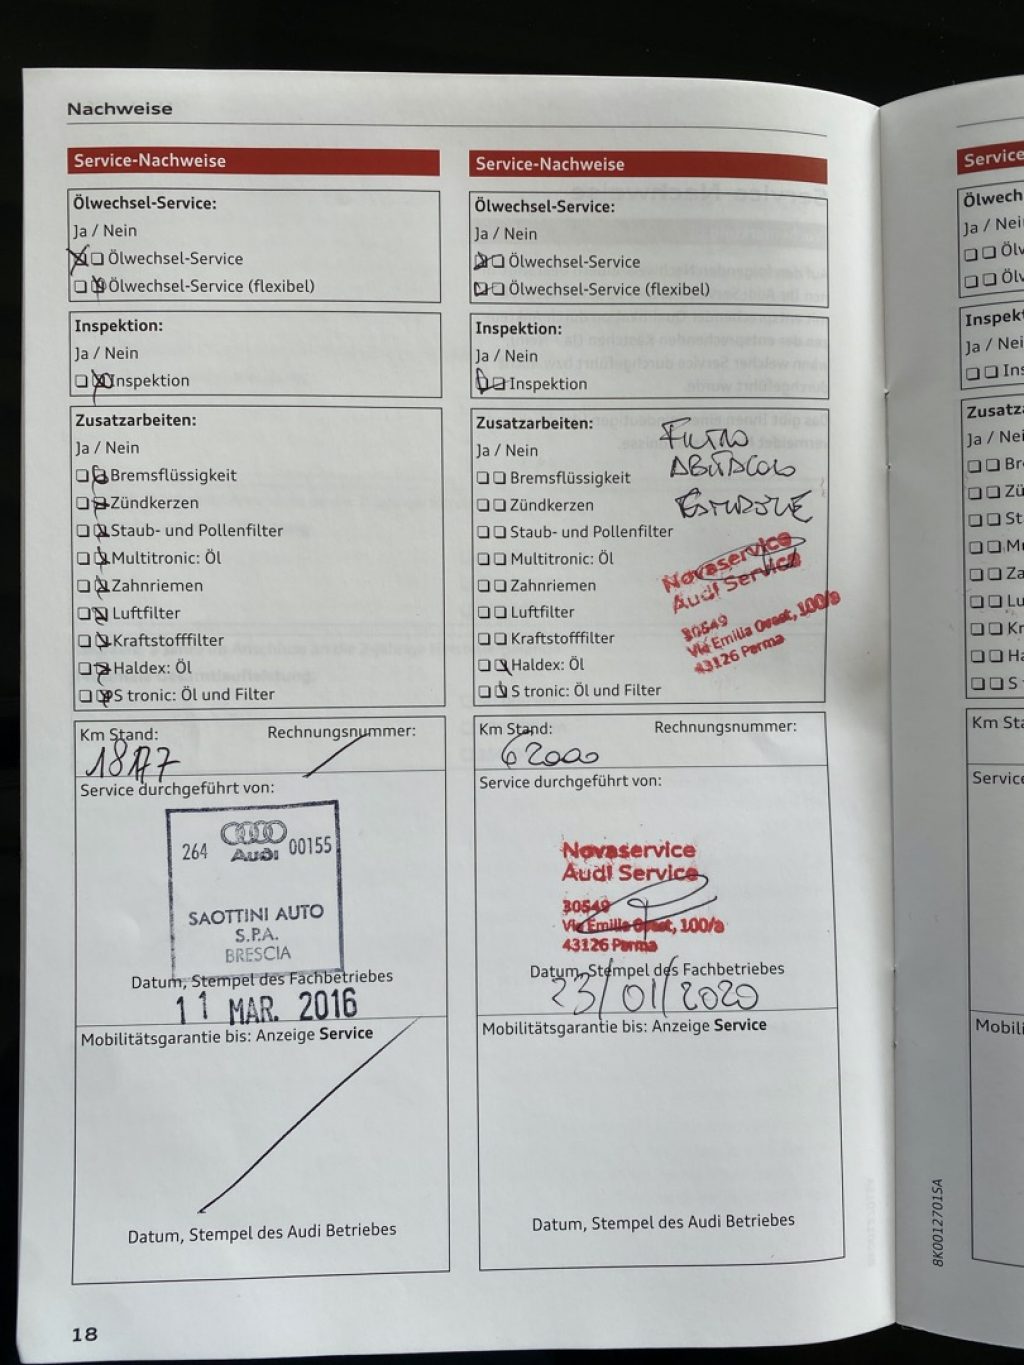 Nachweise
Service-Nachweise
Ölwechsel-Service:
Ja / Nein
Ölwechsel-Service
Ölwechsel-Service (flexibel)
Inspektion:
Ja / Nein
Inspektion
Zusatzarbeiten:
Ja / Nein
Bremsflüssigkeit
Zündkerzen
Staub- und Pollenfilter
Multitronic: Öl
Zahnriemen
Luftfilter
Kraftstofffilter
Haldex: Öl
S tronic: Öl und Filter
Km Stand: Rechnungsnummer:
Service durchgeführt von:
264 Audi 00155
SAOTTINI AUTO
S.P.A.
BRESCIA
Datum, Stempel des Fachbetriebes
11 MAR. 2016
Mobilitätsgarantie bis: Anzeige Service
Datum, Stempel des Audi Betriebes
18
Service-Nachweise
Ölwechsel-Service:
Ja / Nein
Ölwechsel-Service
Ölwechsel-Service (flexibel)
Inspektion:
Ja / Nein
Inspektion
Zusatzarbeiten:
Ja / Nein
FILTRO
ABITACOLO
Bremsflüssigkeit
Zündkerzen
Staub- und Pollenfilter
Multitronic: Öl
Zahnriemen
Luftfilter
Kraftstofffilter
Haldex: Öl
S tronic: Öl und Filter
Novaservice
Audi Service
30549
Via Emilia Ovest, 100/a
43126 Parma
Km Stand: Rechnungsnummer:
62000
Service durchgeführt von:
Novaservice
Audi Service
30549
Via Emilia Ovest, 100/a
43126 Parma
Datum, Stempel des Fachbetriebes
23/01/2020
Mobilitätsgarantie bis: Anzeige Service
Datum, Stempel des Audi Betriebes
8K0012701SA
Service
Ölwech
Ja / Nei
Ölv
Öl
Inspekt
Ja / Nei
Ins
Zusatz
Ja / Nei
Br
Zü
St
Mu
Za
Lu
Kr
Ha
S
Km Sta
Service
Mobili